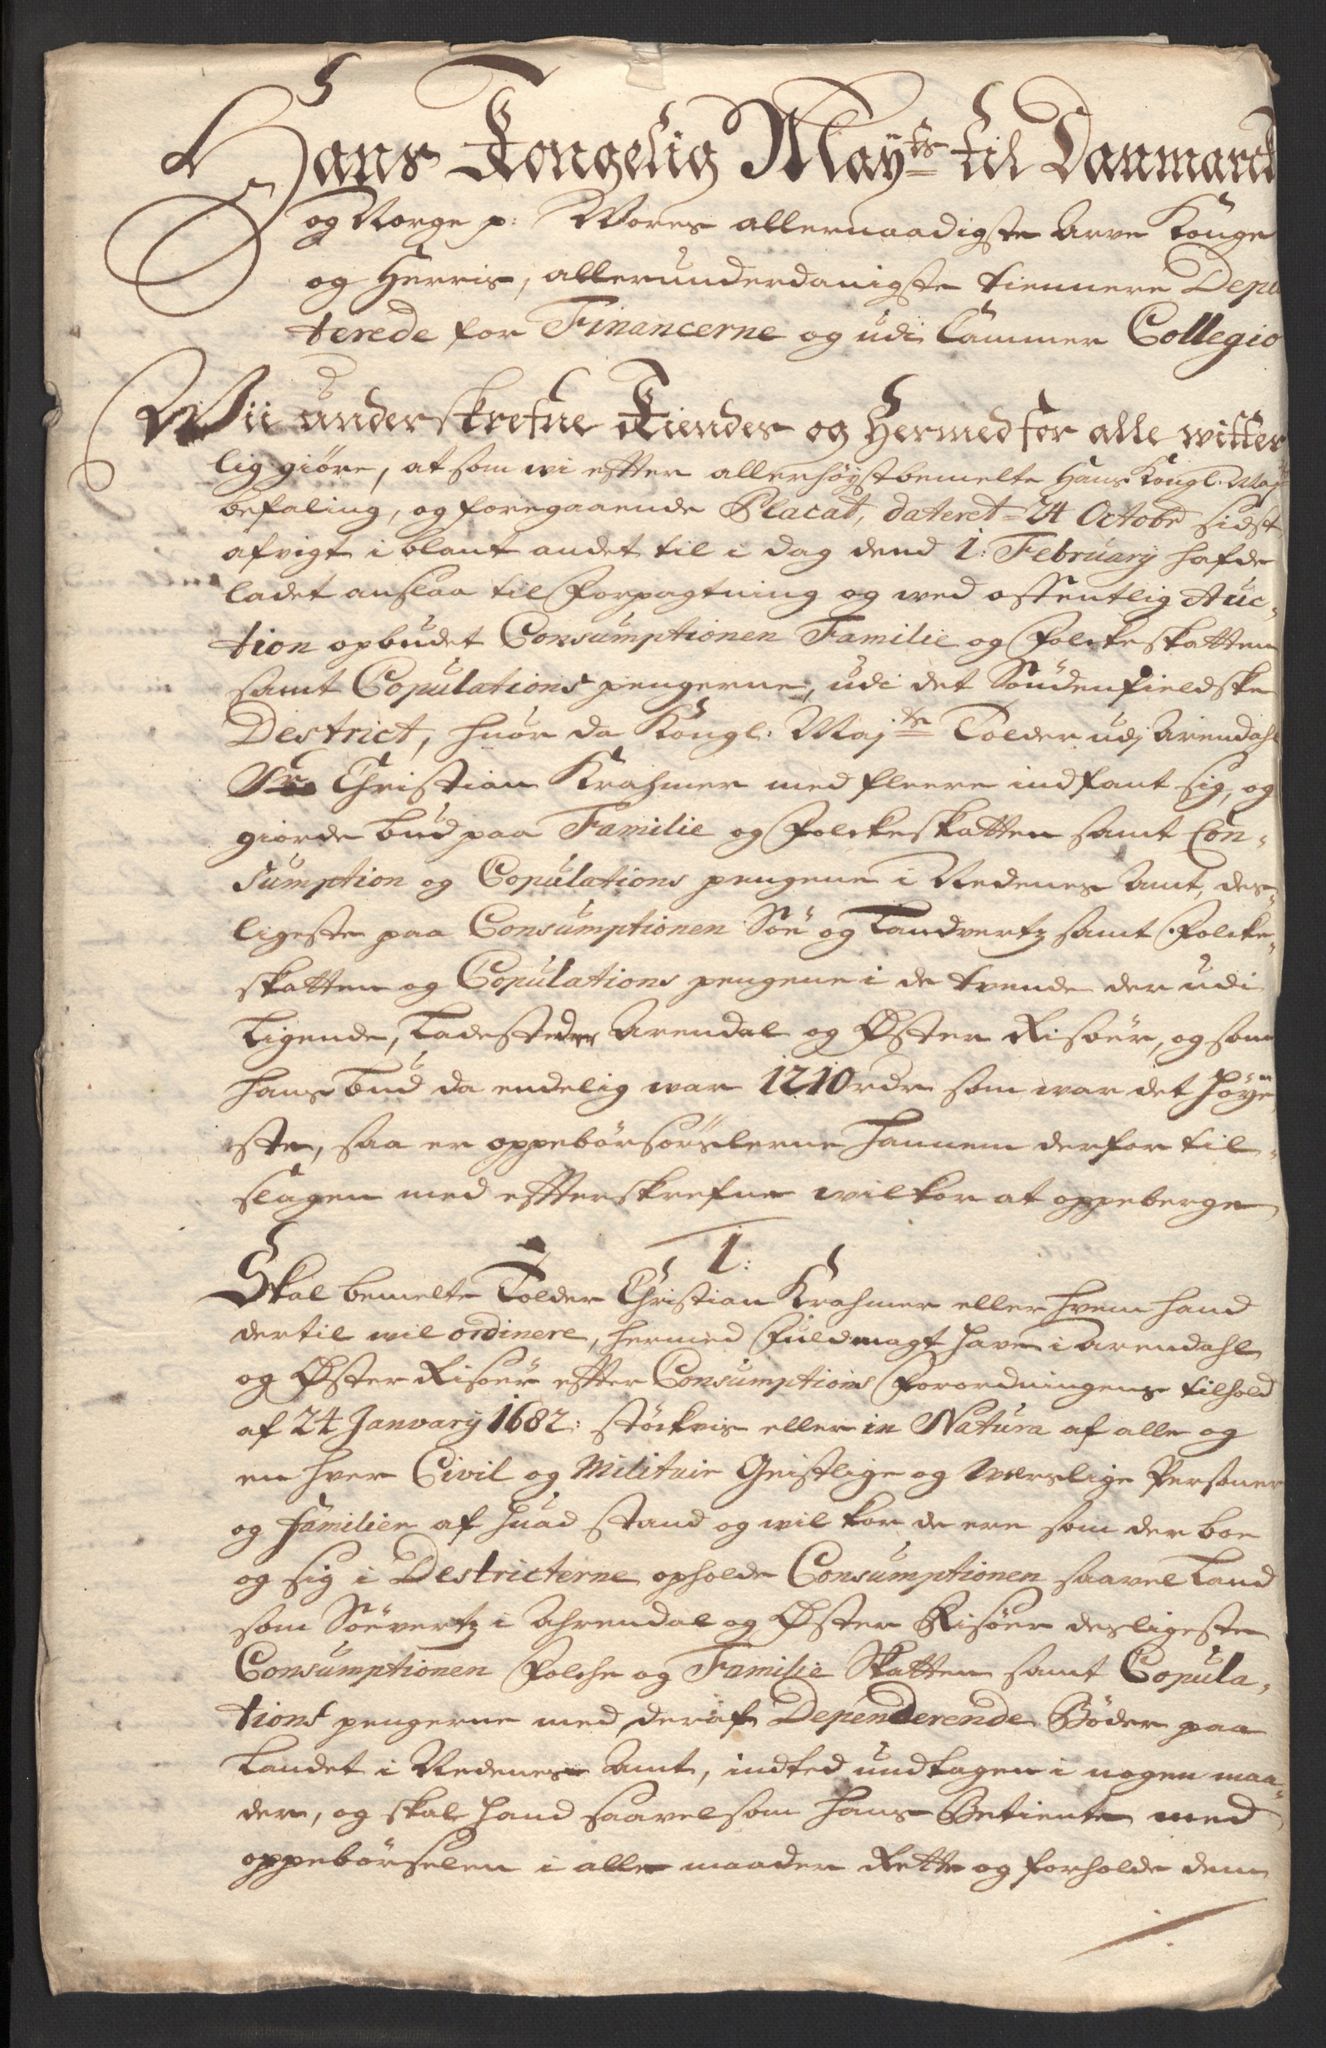 Hans Kongelig Mayts til Danmarck
og Norge p: Wores allernaadigste Arve Konge
og Herris, allerunderdanigste tiennere Depu
terede for Financerne og udi Cammer Collegio
Wii underskrefne Kiendes og Hermed for alle witter
lig giöre, at som wi efter allerhöystbemelte Hans Kongl. May
befaling, og foregaaende Placat, dateret 24 Octobr sidst
afvigt i blant andet til i dag dend 1: February hafde
ladet anslaa til Forpagtning og wed offentlig Auc-
tion opbudet Consumptionen Familie og Folckeskatten
samt Copulations pengerne, udi det Söndenfieldske
District, huor da Kongl: Majts Tolder udj Arendahl
Sr Christian Krahmer med fleere indfant sig, og
giorde bud paa Familie og Folckeskatten samt Con-
sumption og Copulations pengene i Nedenes Amt, des-
ligeste paa Consumptionen Söe og Landvertz samt Folcke-
skatten og Copulations pengene i de tvende der udi
Ligende, Ladesteder Arendal og Öster Risöer, og som
hans bud da endelig war 1210 rdr som war det höye
ste, saa er oppebörsörslerne hannem derfor til-
slagen med effterskrefne wilkor at oppeberge
1:
Skal bemelte Tolder Christian Krahmer eller hvem hand
dertil wil ordinere, hermed Fuldmagt have i Arendahl
og Öster Risöer effter Consumptions Forordningens tilhold
af 24 January 1682: stöckvis eller in Natura af alle og
en hver Civil og Militair Geistlige og Werslige Personer
og Familier af huad stand og wilkor de ere som der boe
og sig i Destricterne opholde Consumptionen saavel Land
som Söevertz i Ahrendal og Öster Risöer desligeste
Consumptionen Folche og Familie Skatten samt Copula-
tions pengerne med deraf Dependerende Böder paa
Landet i Nedenes Amt, indted undtagen i nogen maa-
der, og skal hand saavelsom hans Betiente med
oppebörselen i alle maader Rette og forholde dem